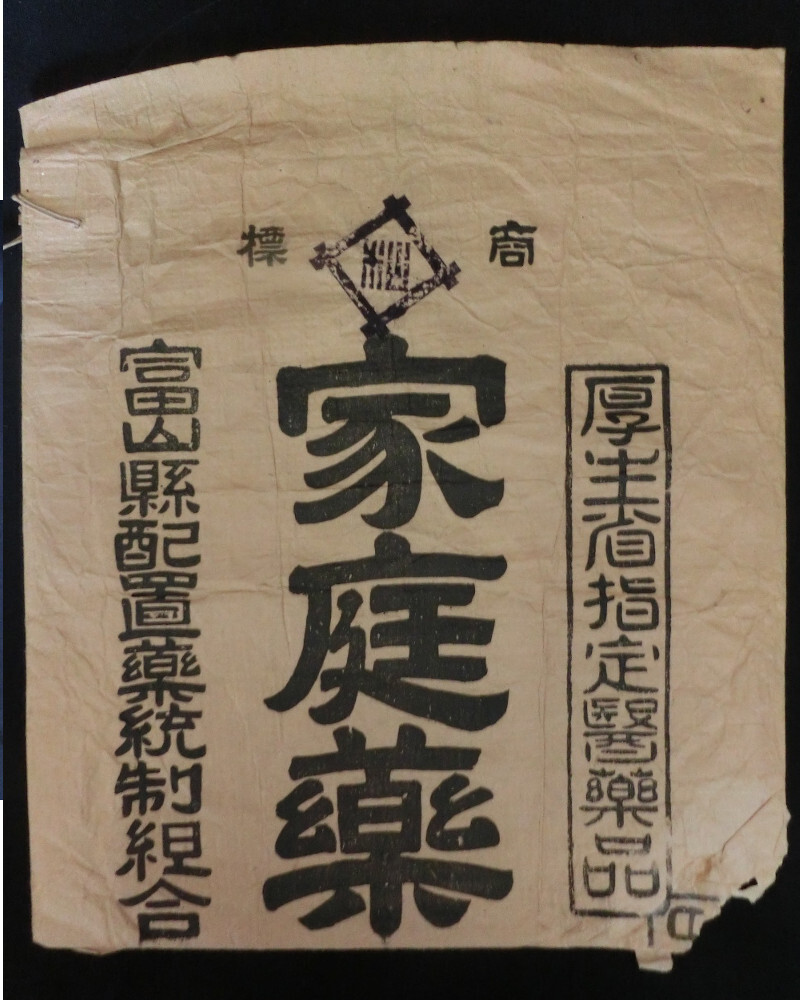 商標
厚生省指定醫藥品
家庭藥
富山縣配置藥統制組合